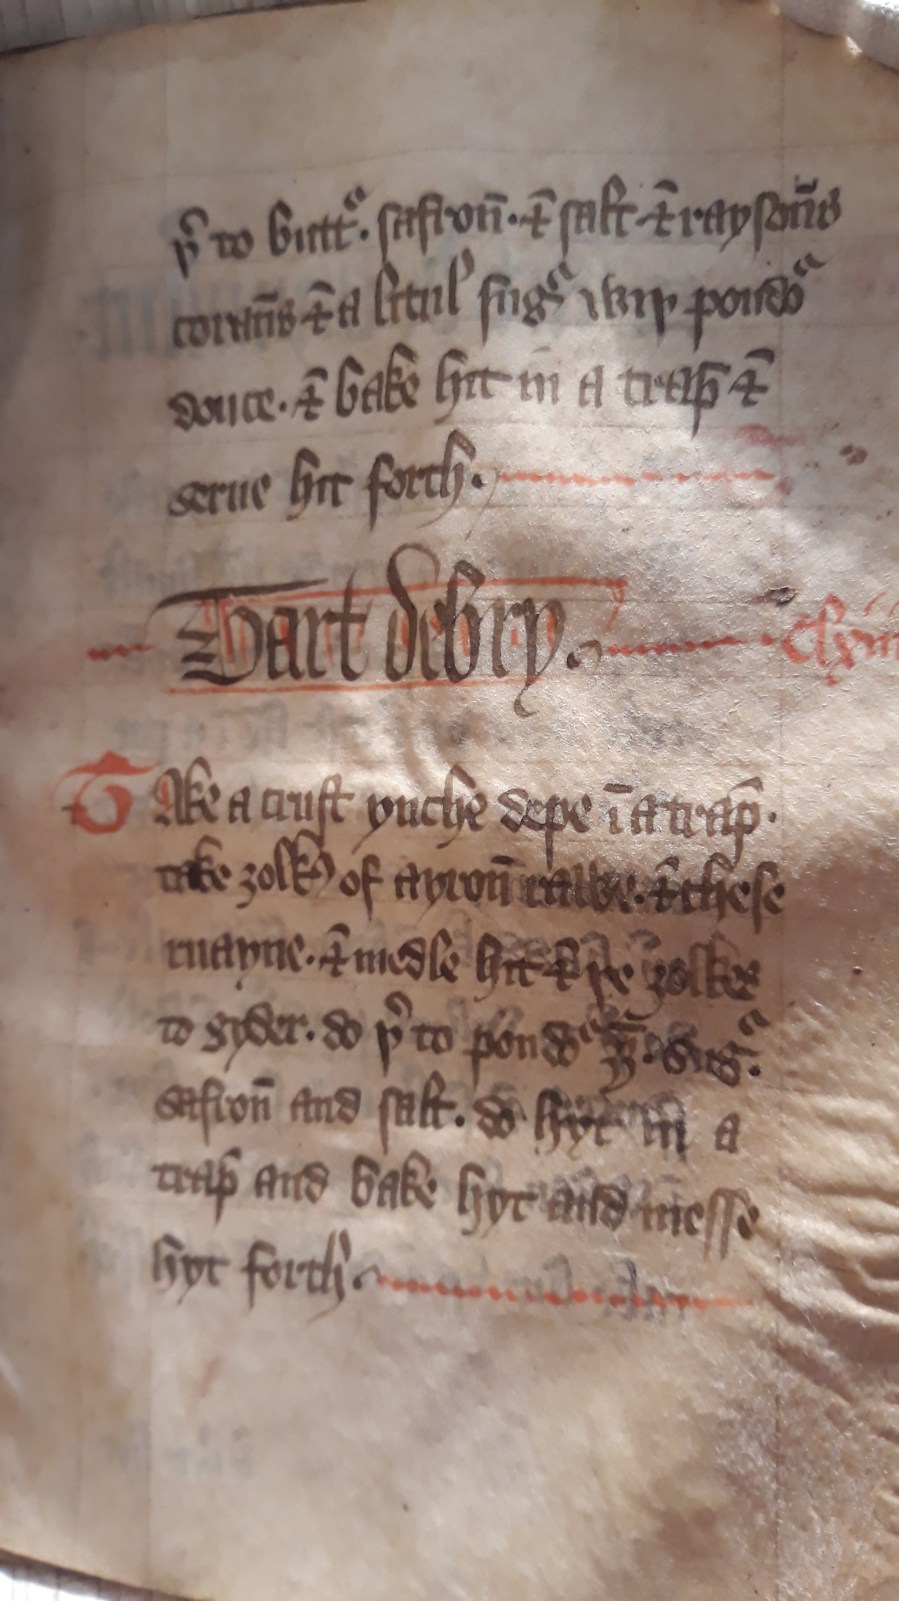 þ̉ to buttᵃ. safron̄. ⁊̄ salt ⁊̄ raysōns
corāns ⁊̄ a litul sugᵃ wiþ poudᵃ
douce. ⁊̄ bake hit in a trap̄ ⁊̄
serue hit forth.
Tart debry.
TAke a crust ynche depe ī a trap̄.
take ȝolkꝭ of ayron̄ rawe. ⁊̄ chese
ruayne. ⁊̄ medle hit ⁊̄ þe ȝolkes
to gyder. do þ̉ to poudᵃ. sugᵃ.
safron̄ and salt. do hyt in a
trap̄ and bake hyt and messe
hyt forth.